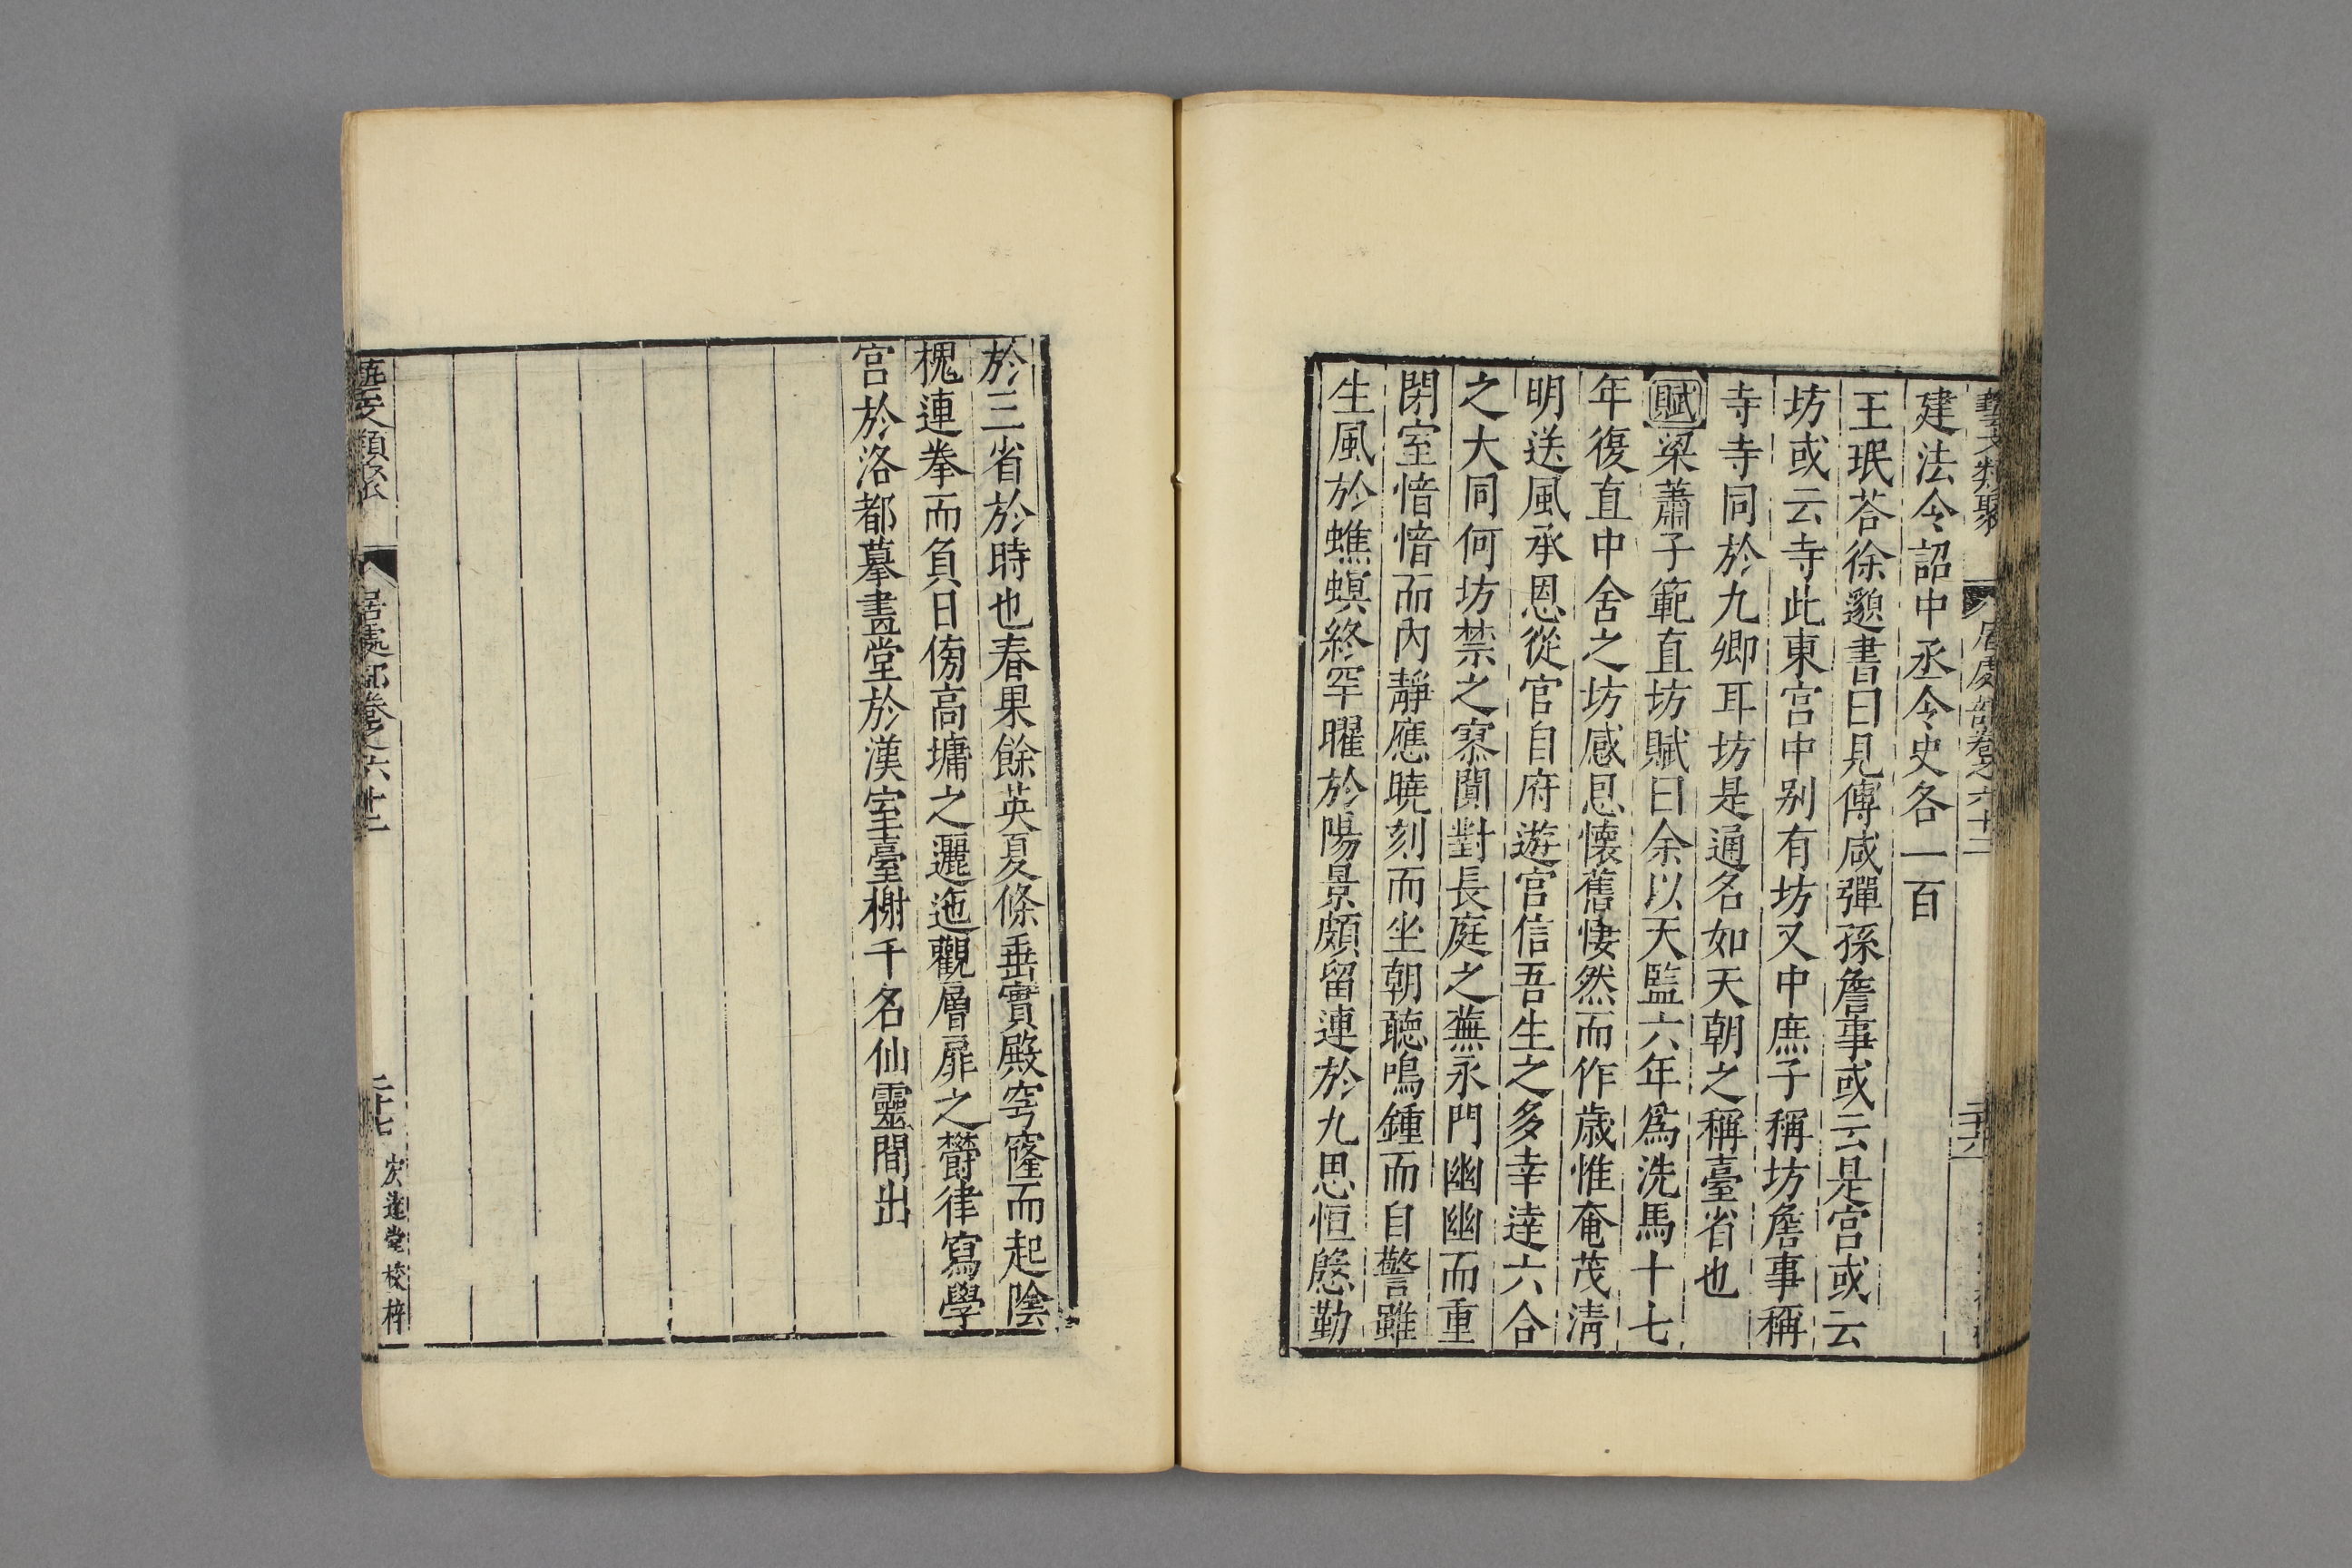 藝文類聚
居處部卷之六十三
二十六
建法令詔中丞令史各一百
王珉荅徐邈書曰見傅咸彈孫詹事或云是宫或云
坊或云寺此東宫中别有坊又中庶子稱坊詹事稱
寺寺同於九卿耳坊是通名如天朝之稱臺省也
賦梁蕭子範直坊賦曰余以天監六年爲洗馬十七
年復直中舍之坊感恩懷舊悽然而作歲惟奄茂淸
明送風承恩從官自府遊宫信吾生之多幸逹六合
之大同何坊禁之寥闃對長庭之蕪永門幽幽而重
閉室愔愔而內靜應曉刻而坐朝聽鳴鍾而自警雖
生風於蟭螟終罕曜於陽景頗留連於九思恒慇勤
於三省於時也春果餘英夏條垂實殿穹窿而起陰
槐連拳而負日傍高墉之邐迤觀層扉之欎律寫學
宫於洛都摹畫堂於漢室臺榭千名仙靈間出
藝文類聚
居處部卷之六十三
二十七
宏逹堂校梓